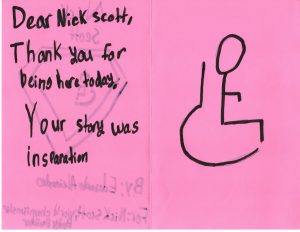 Dear Nick Scott,
Thank you for
being here today,
Your story was
insparation
By: Eduardo
For: Nick Scott